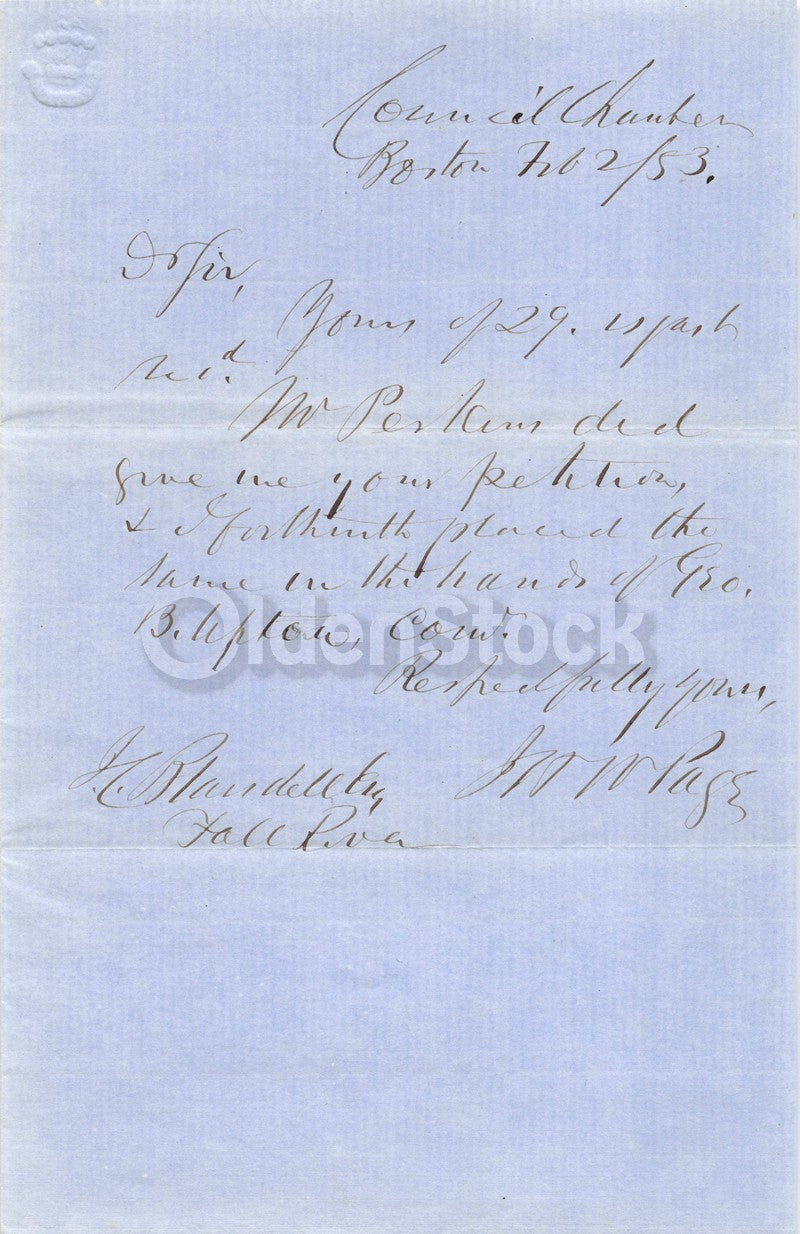 Council Chamber
Boston Feb 2/53.
Dr Sir,
Yours of 29. is just
recd.
Mr Perkins did
give me your petition,
& I forthwith placed the
same in the hands of Geo.
B. Upton, Comr.
OldenStock
Respectfully yours,
J. C. Blaisdell Esq
Page
Fall River